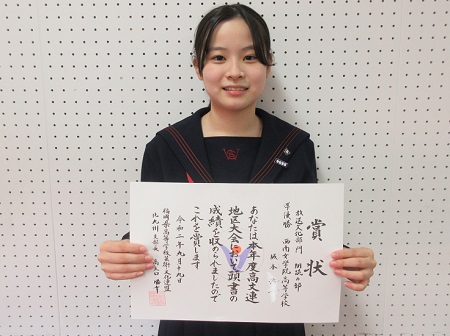 賞状
放送文化部門 朗読の部
準優勝 西南女学院高等学校
坂本
あなたは本年度高文連
地区大会において頭書の
成績を収められましたので
これを賞します
令和二年九月十九日
福岡県高等学校芸術・文化連盟
北九州支部長